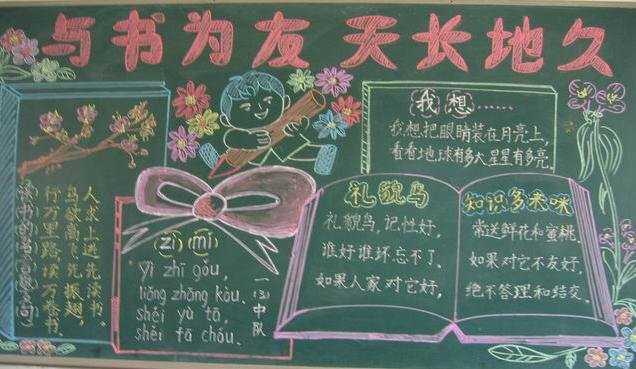 与书为友 天长地久
我想……
我想把眼睛装在月亮上,
看看地球有多大星星有多亮.
人求上进先读书。
鸟欲高飞先振翅,
行万里路,读万卷书.
(zì)(mí)
yì zhī gǒu,
liǎng zhāng kǒu.
shéi yù tā,
shéi fā chóu.
一(3)中队
礼貌鸟
礼貌鸟,记性好,
谁好谁坏忘不了.
如果人家对它好,
知识多来咪
常送鲜花和蜜桃.
如果对它不友好,
绝不答理和结交.